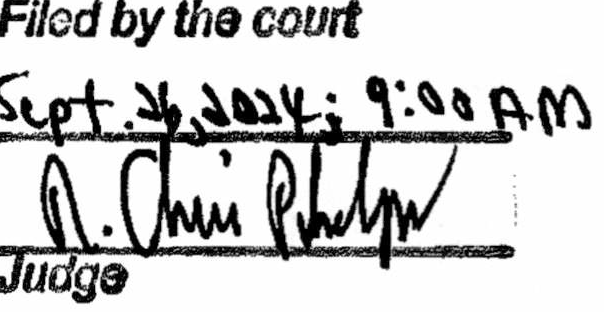 Filed by the court
Sept. 26, 2024; 9:00 AM
R. Chris Phelps
Judge